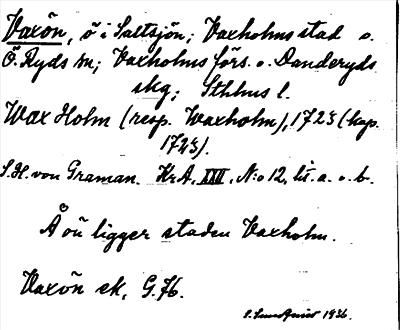 Vaxön, ö i Saltsjön; Vaxholms stad o.
Ö. Ryds sn; Vaxholms förs. o. Danderyds
skg; Sthlms l.
Wax Holm (resp. Waxholm), 1723 (kop.
1723).
S. H. von Graman. Kr. A. XXII, N:o 12, lit. a. o. b.
Å ön ligger staden Vaxholm.
Vaxön ek, G. 76.
S. Lundqvist 1936.